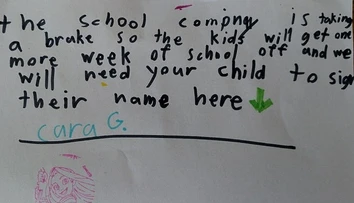 the school compngy is taking
a brake so the kids will get one
more week of school off and we
will need your child to sign
their name here
cara G.